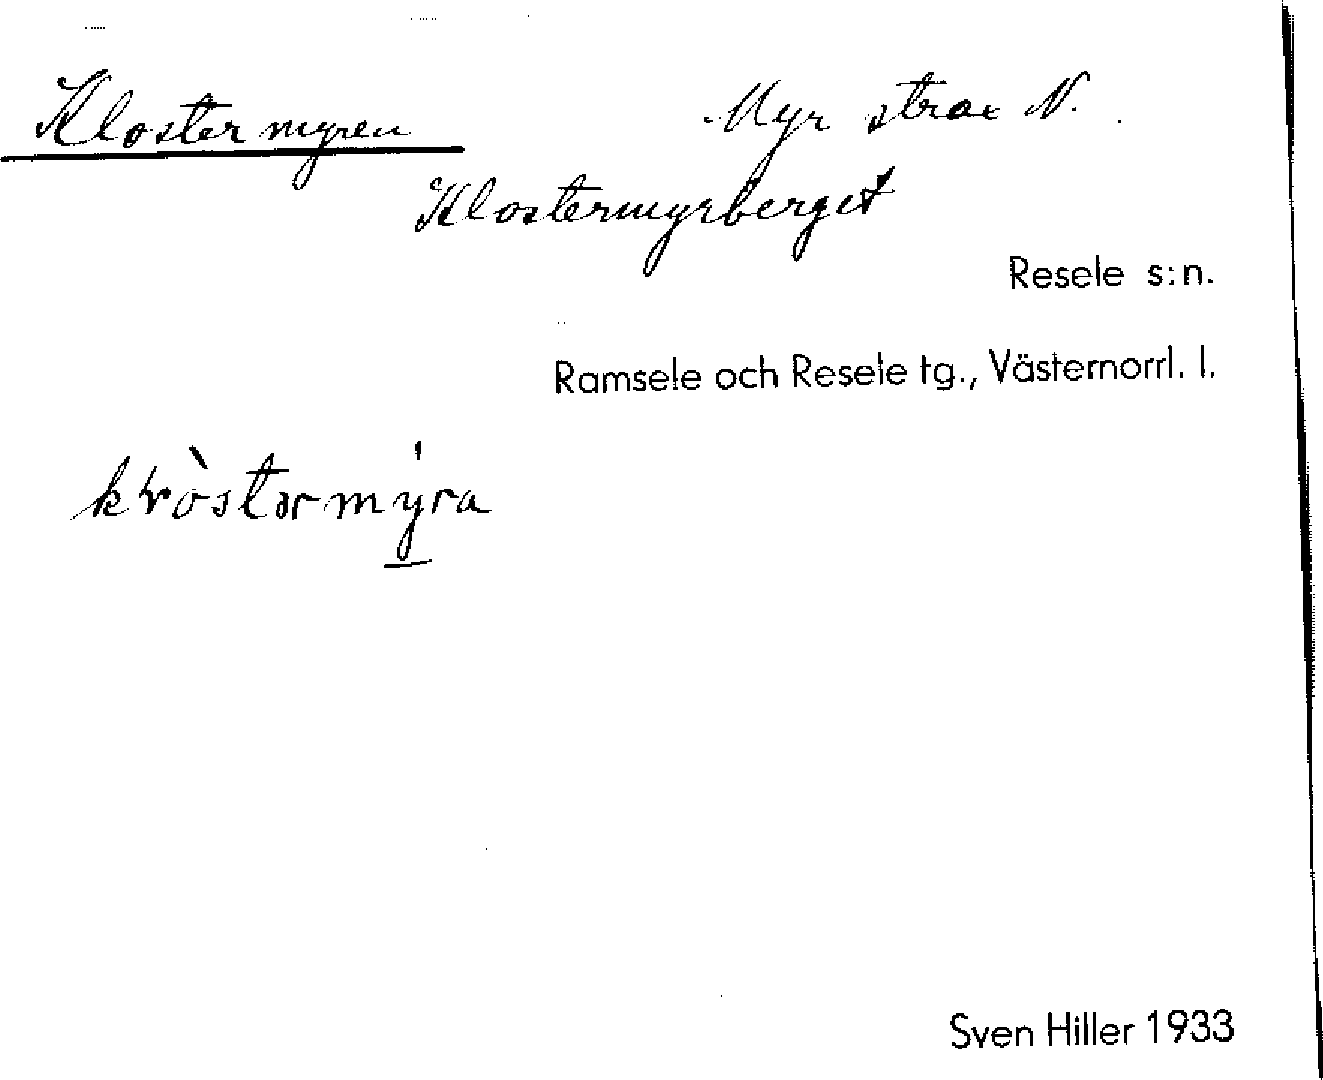 Klostermyren
Myr strax N.
Klostermyrberget
Resele s:n.
Ramsele och Resele tg., Västernorrl. l.
Sven Hiller 1933